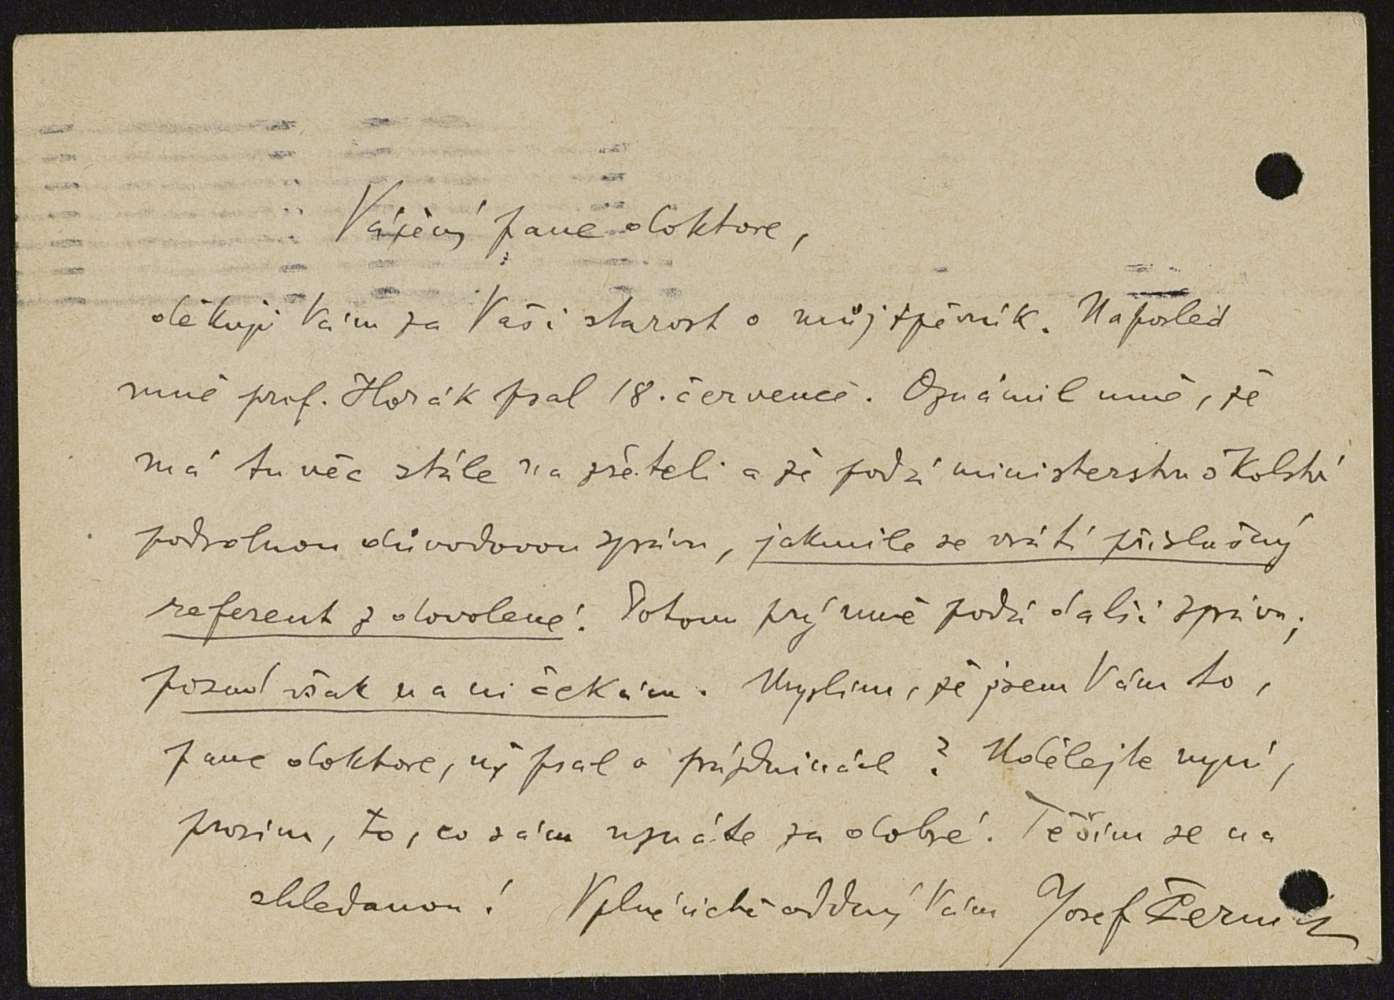 Vážený pane doktore,
děkuji Vám za Vaši starost o můj zpěvník. Naposled
mně prof. Horák psal 18. července. Oznámil mně, že
má tu věc stále na zřeteli a že podá ministerstvu školství
podrobnou důvodovou zprávu, jakmile se vrátí příslušný
referent z dovolené. Potom prý mně podá další zprávu;
posud však na ni čekám. Myslím, že jsem Vám to,
pane doktore, již psal o prázdninách? Udělejte nyní,
prosím, to, co sám uznáte za dobré. Těším se na
shledanou! V plné úctě oddaný Vám Josef Černík